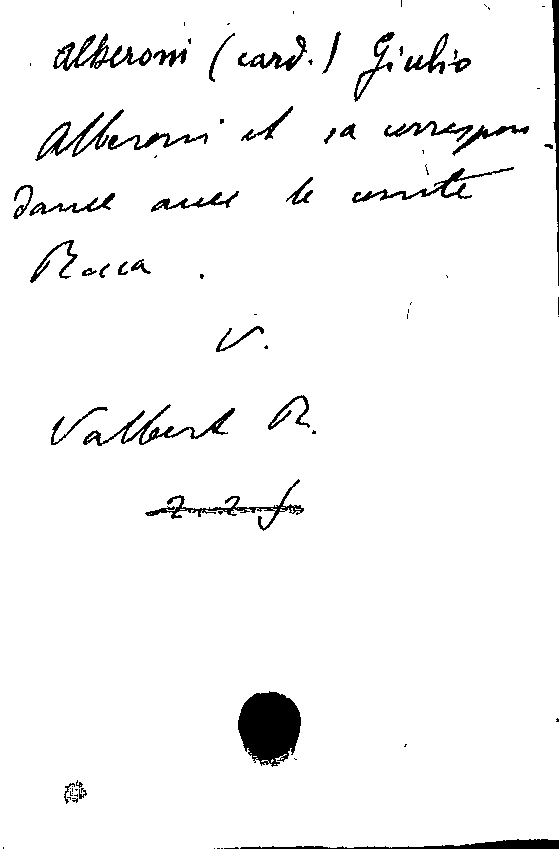 Alberoni (card.) Giulio
Alberoni et sa correspon-
dance avec le comte
Rocca.
V.
Valbert R.